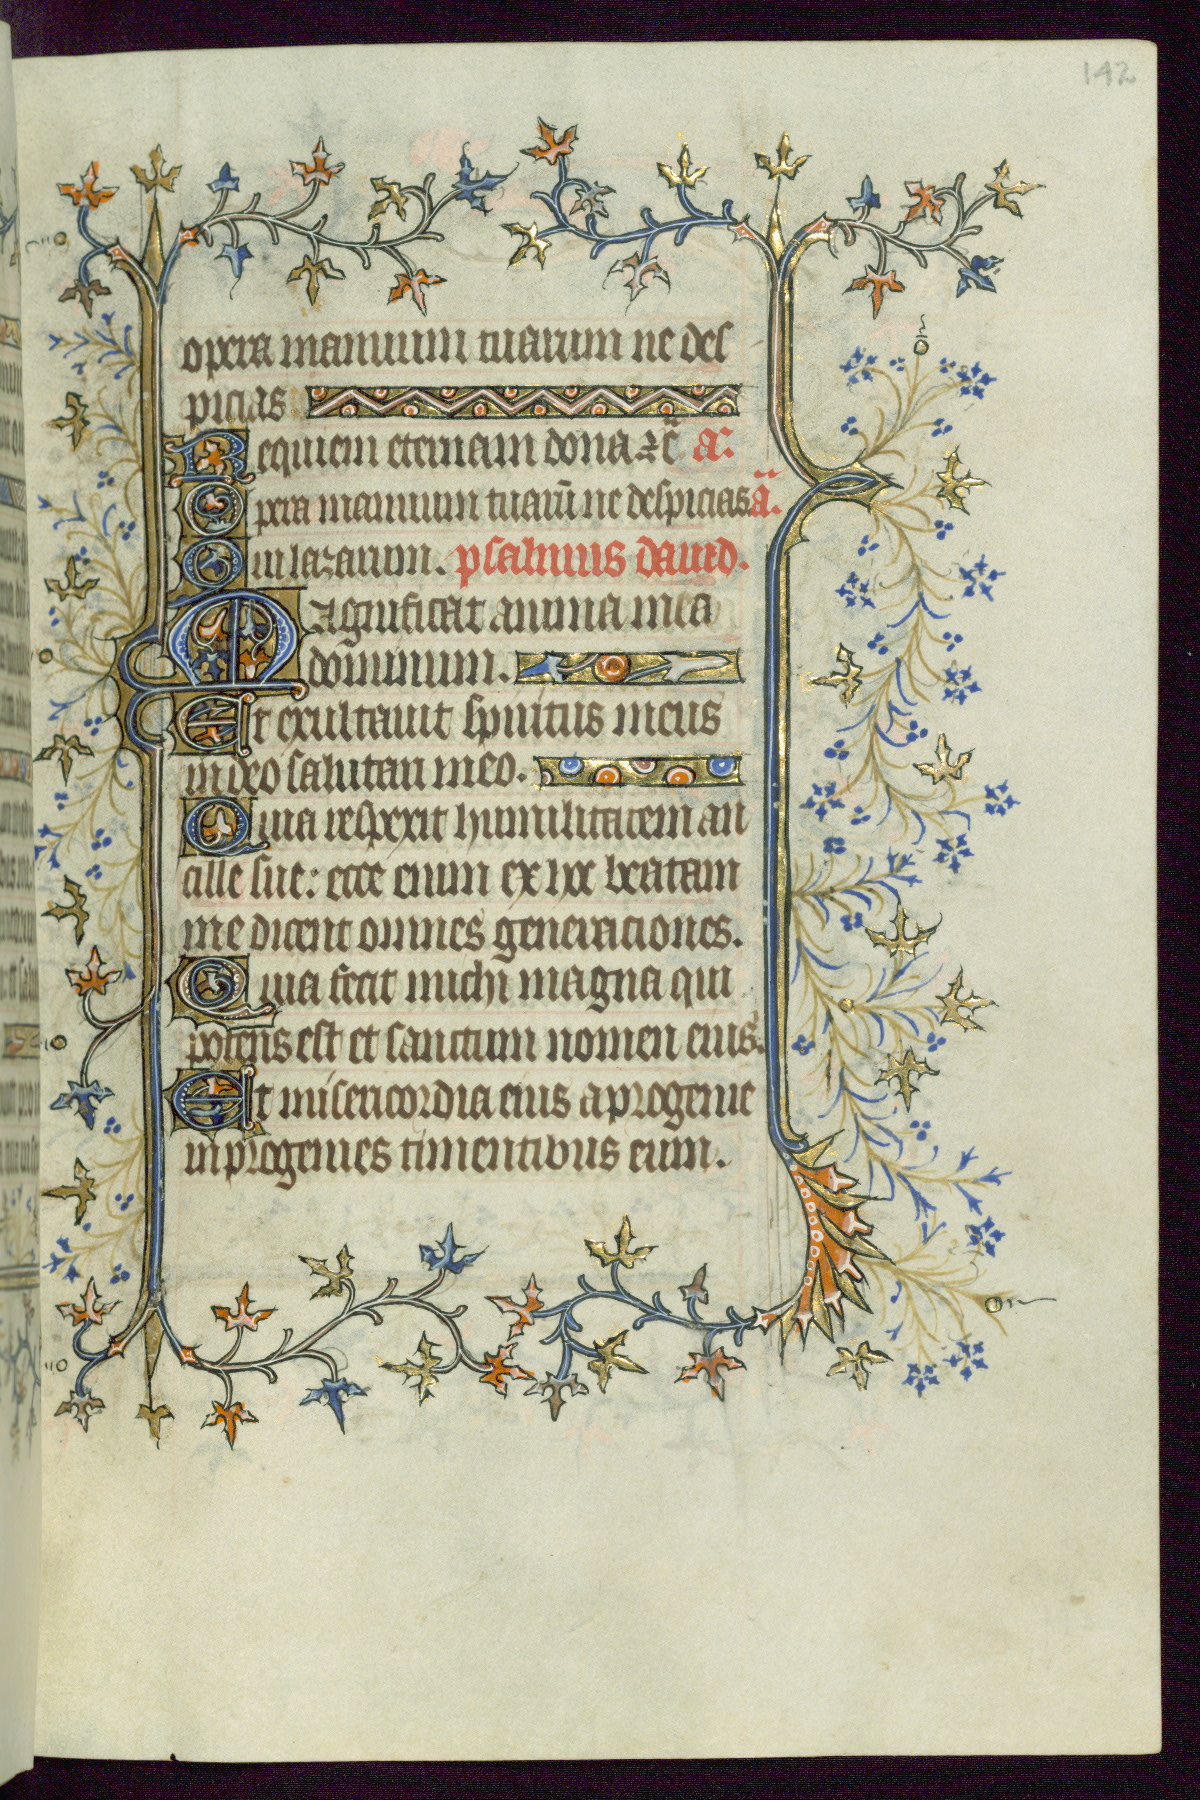 142
opera manuum tuarum ne des
picias
Requiem eternam dona ⁊c̄ a.
Opera manuum tuarū ne despicias ā.
Qui lazarum. psalmus dauid.
Magnificat anima mea
dominum.
Et exultauit spiritus meus
in deo salutari meo.
Quia respexit humilitatem an
cille sue: ecce enim ex hoc beatam
me dicent omnes generaciones.
Quia fecit michi magna qui
potens est et sanctum nomen eius.
Et misericordia eius a progenie
in progenies timentibus eum.